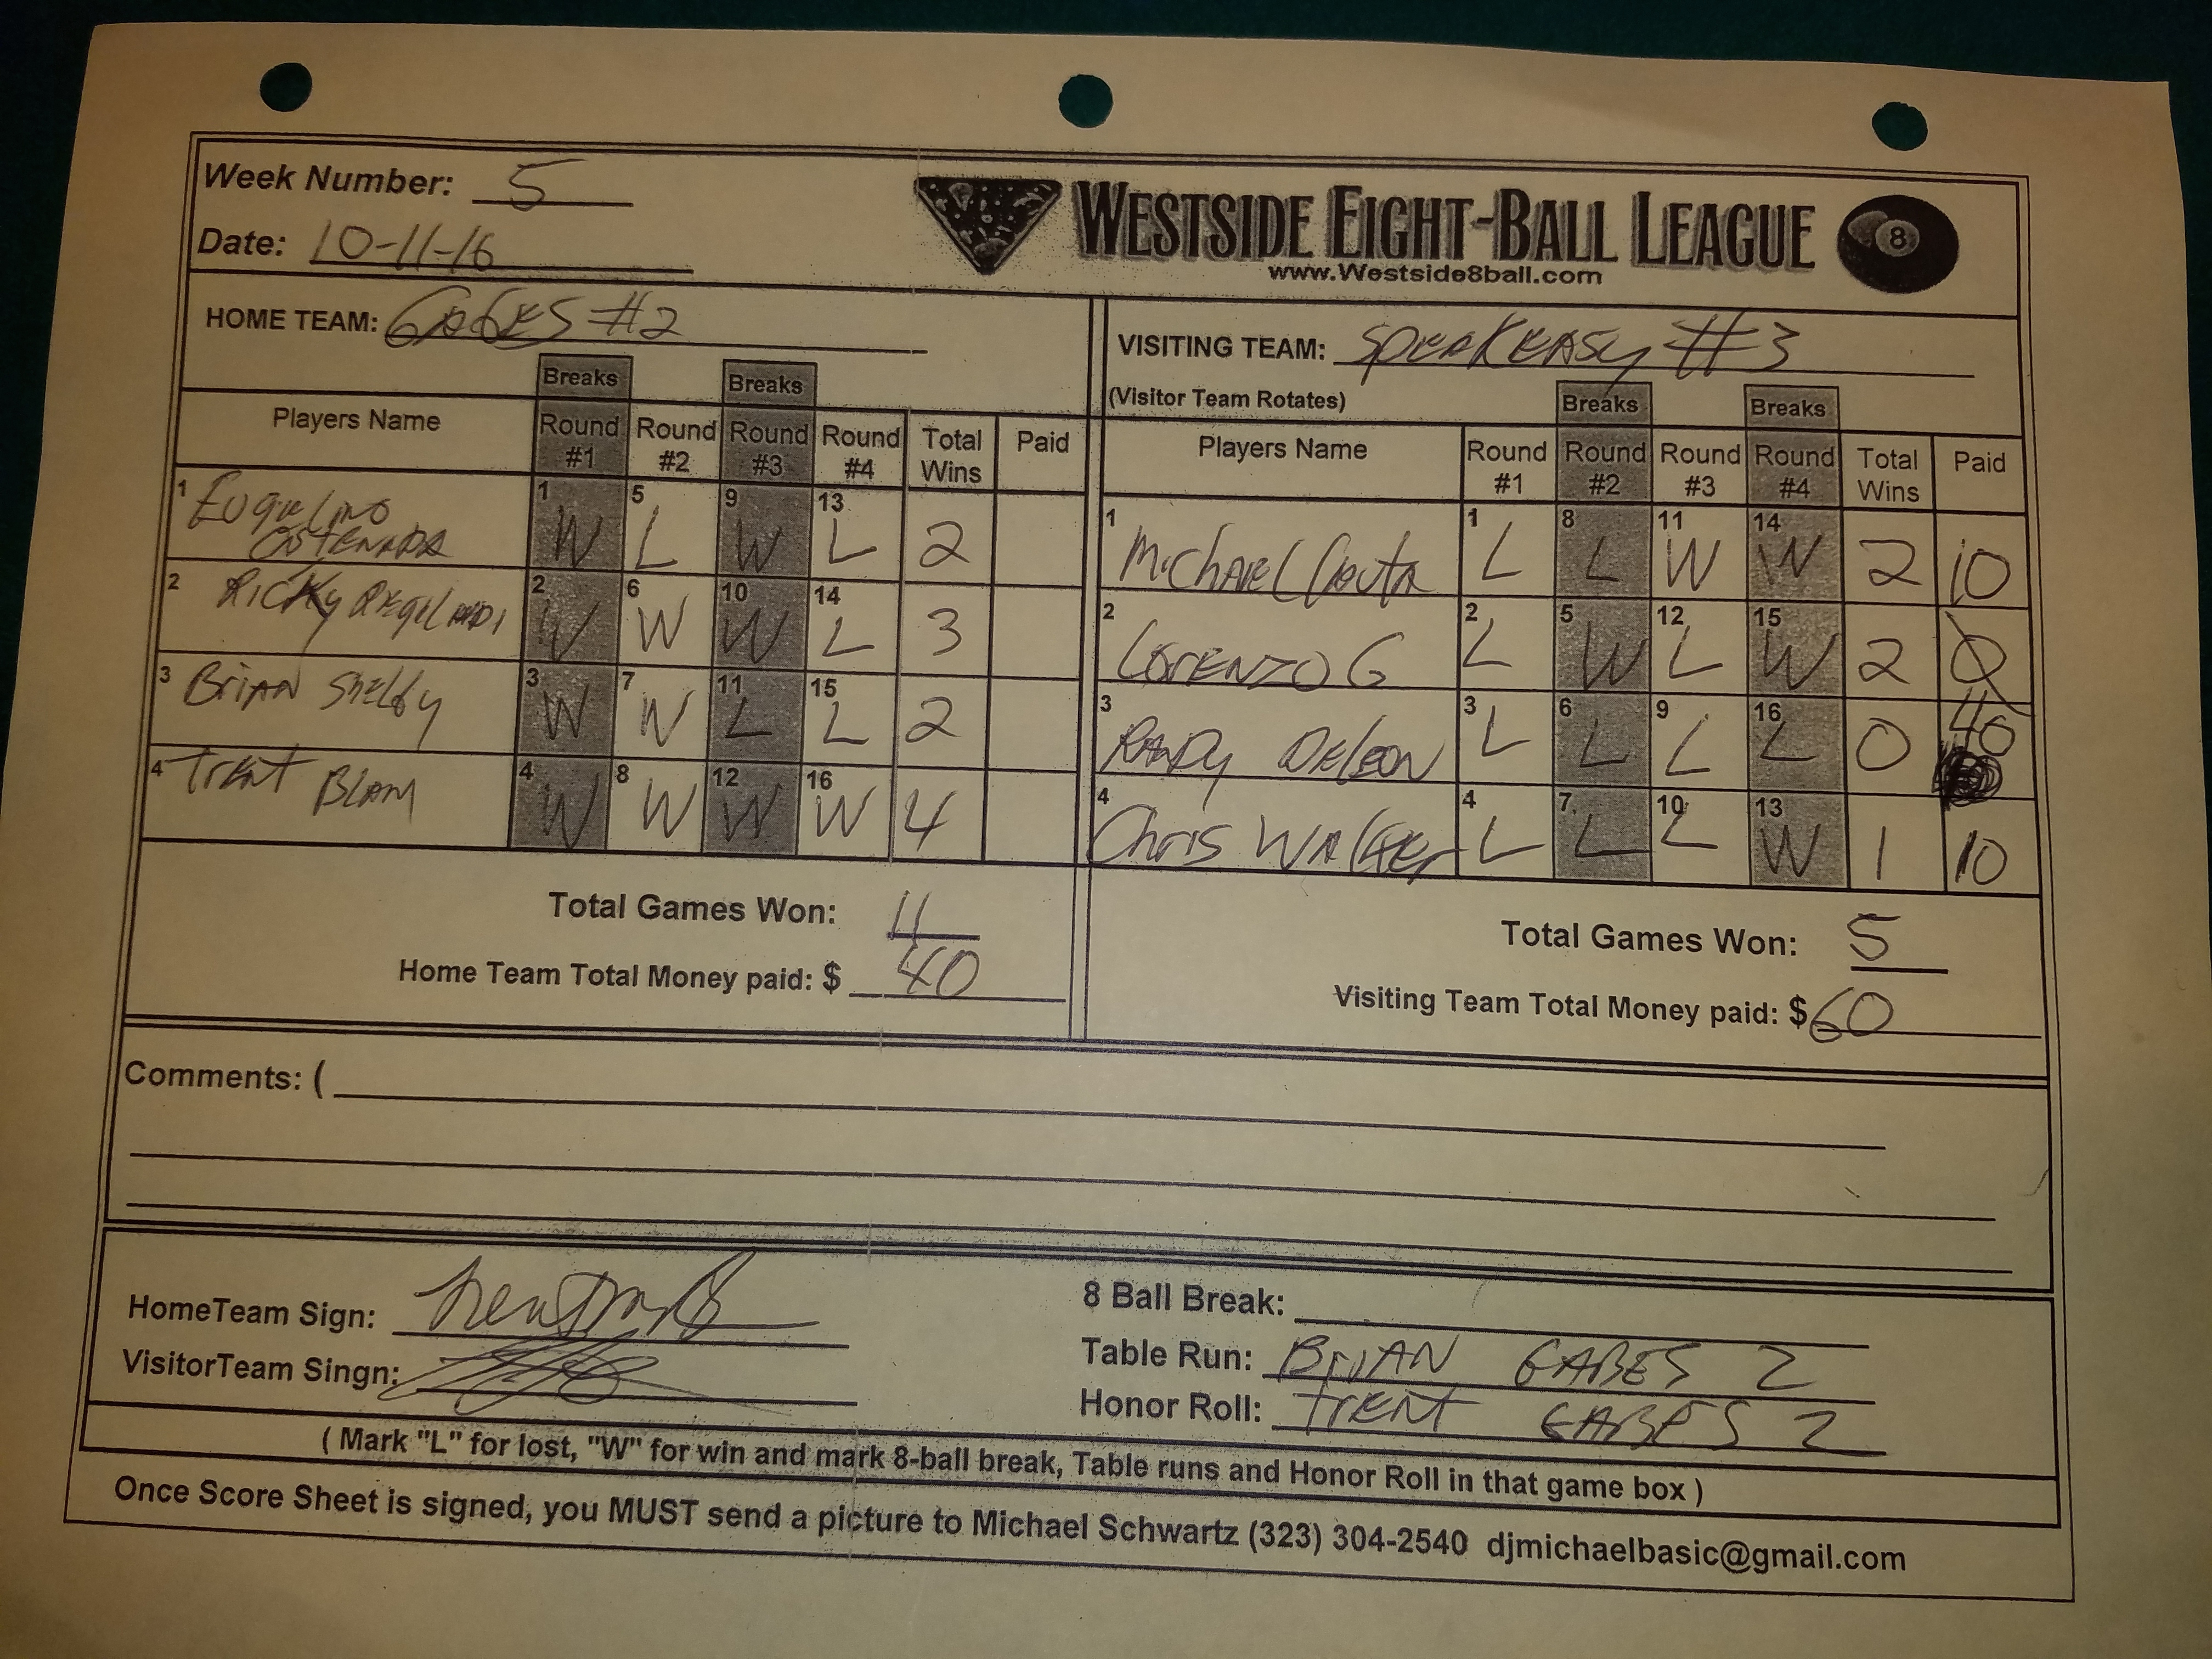 Week Number: 5
Date: 10-11-16
WESTSIDE EIGHT-BALL LEAGUE
8
www.Westside8ball.com
HOME TEAM: GABES #2
VISITING TEAM: SPEAKEASY #3
(Visitor Team Rotates)
Breaks Breaks
Breaks Breaks
Players Name Round #1 Round #2 Round #3 Round #4 Total Wins Paid
1 1 W 5 L 9 W 13 L 2
2 Ricky 2 W 6 W 10 W 14 L 3
3 Brian Shelby 3 W 7 W 11 L 15 L 2
4 Trent 4 W 8 W 12 W 16 W 4
Total Games Won: 11
Home Team Total Money paid: $ 40
Players Name Round #1 Round #2 Round #3 Round #4 Total Wins Paid
1 Michael 1 L 8 L 11 W 14 W 2 10
2 Lorenzo G 2 L 5 W 12 L 15 W 2
3 Randy DeLeon 3 L 6 L 9 L 16 L 0 40
4 Chris Walker 4 L 7 L 10 L 13 W 1 10
Total Games Won: 5
Visiting Team Total Money paid: $ 60
Comments: (
HomeTeam Sign:
VisitorTeam Singn:
8 Ball Break:
Table Run: BRIAN GABES 2
Honor Roll: TRENT GABES 2
( Mark "L" for lost, "W" for win and mark 8-ball break, Table runs and Honor Roll in that game box )
Once Score Sheet is signed, you MUST send a picture to Michael Schwartz (323) 304-2540 djmichaelbasic@gmail.com